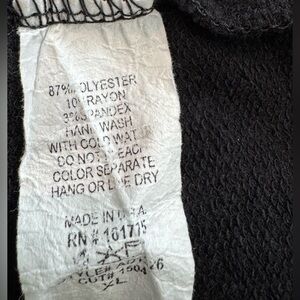 87% POLYESTER
10% RAYON
3% SPANDEX
HAND WASH
WITH COLD WATER
DO NOT BLEACH
COLOR SEPARATE
HANG OR LINE DRY
MADE IN U.S.A.
RN # 161715
CUT#
XL